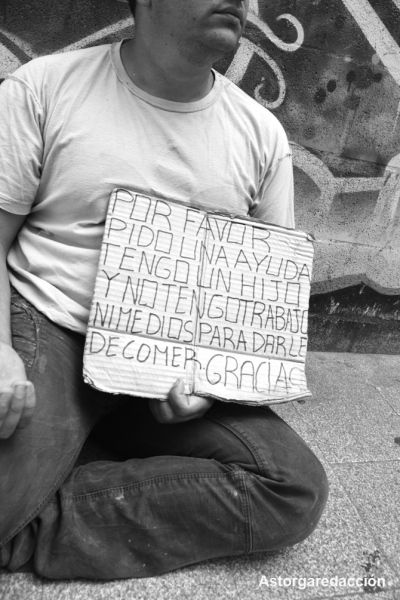 POR FAVOR
PIDO UNA AYUDA
TENGO UN HIJO
Y NO TENGO TRABAJO
NI MEDIOS PARA DARLE
DE COMER GRACIAS
Astorgaredacción